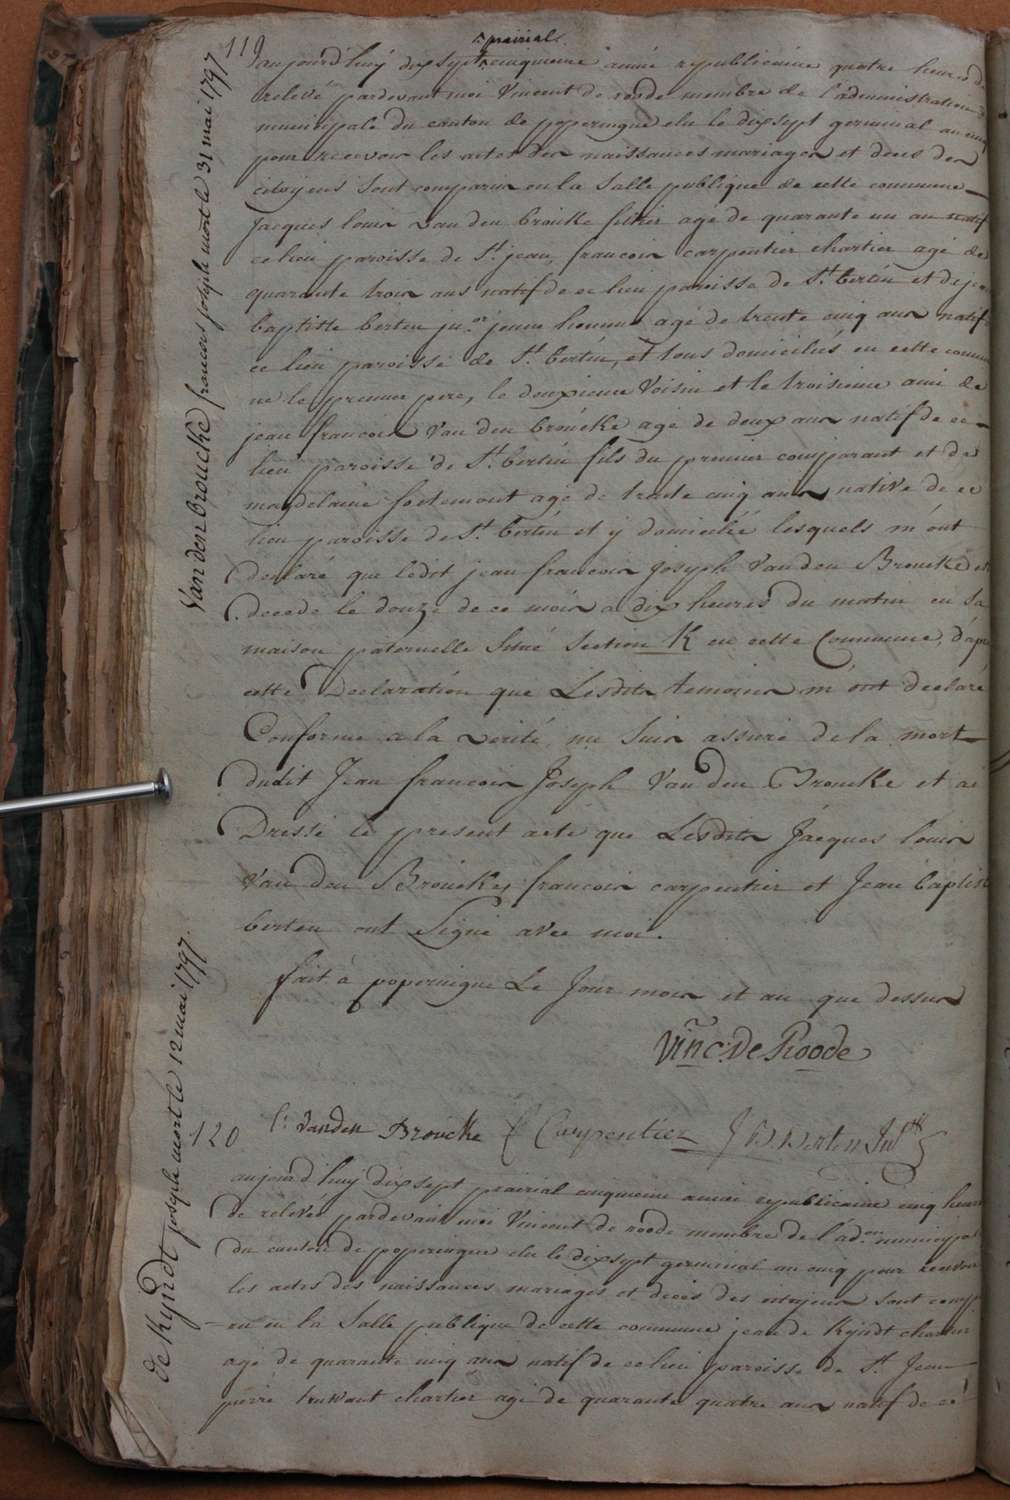 119
prairial
aujourd'huy dix sept cinquieme année republicaine quatre heures de
relevée pardevant moi Vincent de roode membre de l'administration
municipale du canton de poperingue elu le dix sept germinal an cinq
pour recevoir les actes des naissances mariages et deces des
citoyens sont comparus en la Salle publique de cette commune
Jacques louis van den broucke agé de quarante un an natif
ce lieu paroisse de St. jean, francois carpentier chartier agé de
quarante trois ans natif de ce lieu paroisse de St. bertin et de jean
baptiste berten jn.or jeune homme agé de trente cinq ans natif
ce lieu paroisse de St. bertin, et tous domiciliés en cette commu
ne le premier pere, le deuxieme Voisin et le troisieme ami de
jean francois Van den broucke agé de deux ans natif de ce
lieu paroisse de St. bertin fils du premier comparant et de
magdelaine fortemont agé de trente cinq ans native de ce
lieu paroisse de St. bertin et y domicilié lesquels m'ont
declaré que ledit jean francois Joseph Van den Broucke est
decedé le douze de ce mois a dix heures du matin en sa
maison paternelle situé section K en cette Commune, d'apr
cette Declaration que Lesdits temoins m'ont declaré
Conforme a la verité, me suis assuré de la mort
dudit Jean francois Joseph Van den Broucke et ai
Dressé le present acte que Lesdits Jacques louis
Van den Broucke, francois carpentier et Jean baptist
berten ont Signé avec moi.
fait à poperingue Le Jour mois et an que dessus
Vinc: De Roode
l: vanden Broucke f Carpentier J B Berten Jn
120
aujourd'huy dix sept prairial cinquieme année republicaine cinq heures
de relevée pardevant moi Vincent de roode membre de l'ad.on municipal
du canton de poperingue elu le dix sept germinal an cinq pour recevoir
les actes des naissances mariages et deces des citoyens sont comp
en la Salle publique de cette commune jean de Kyndt chartier
agé de quarante cinq ans natif de ce lieu paroisse de St. Jean
pierre chartier agé de quarante quatre ans natif de ce
Van den broucke francois joseph mort le 31 mai 1797
de Kyndt joseph mort le 12 mai 1797.